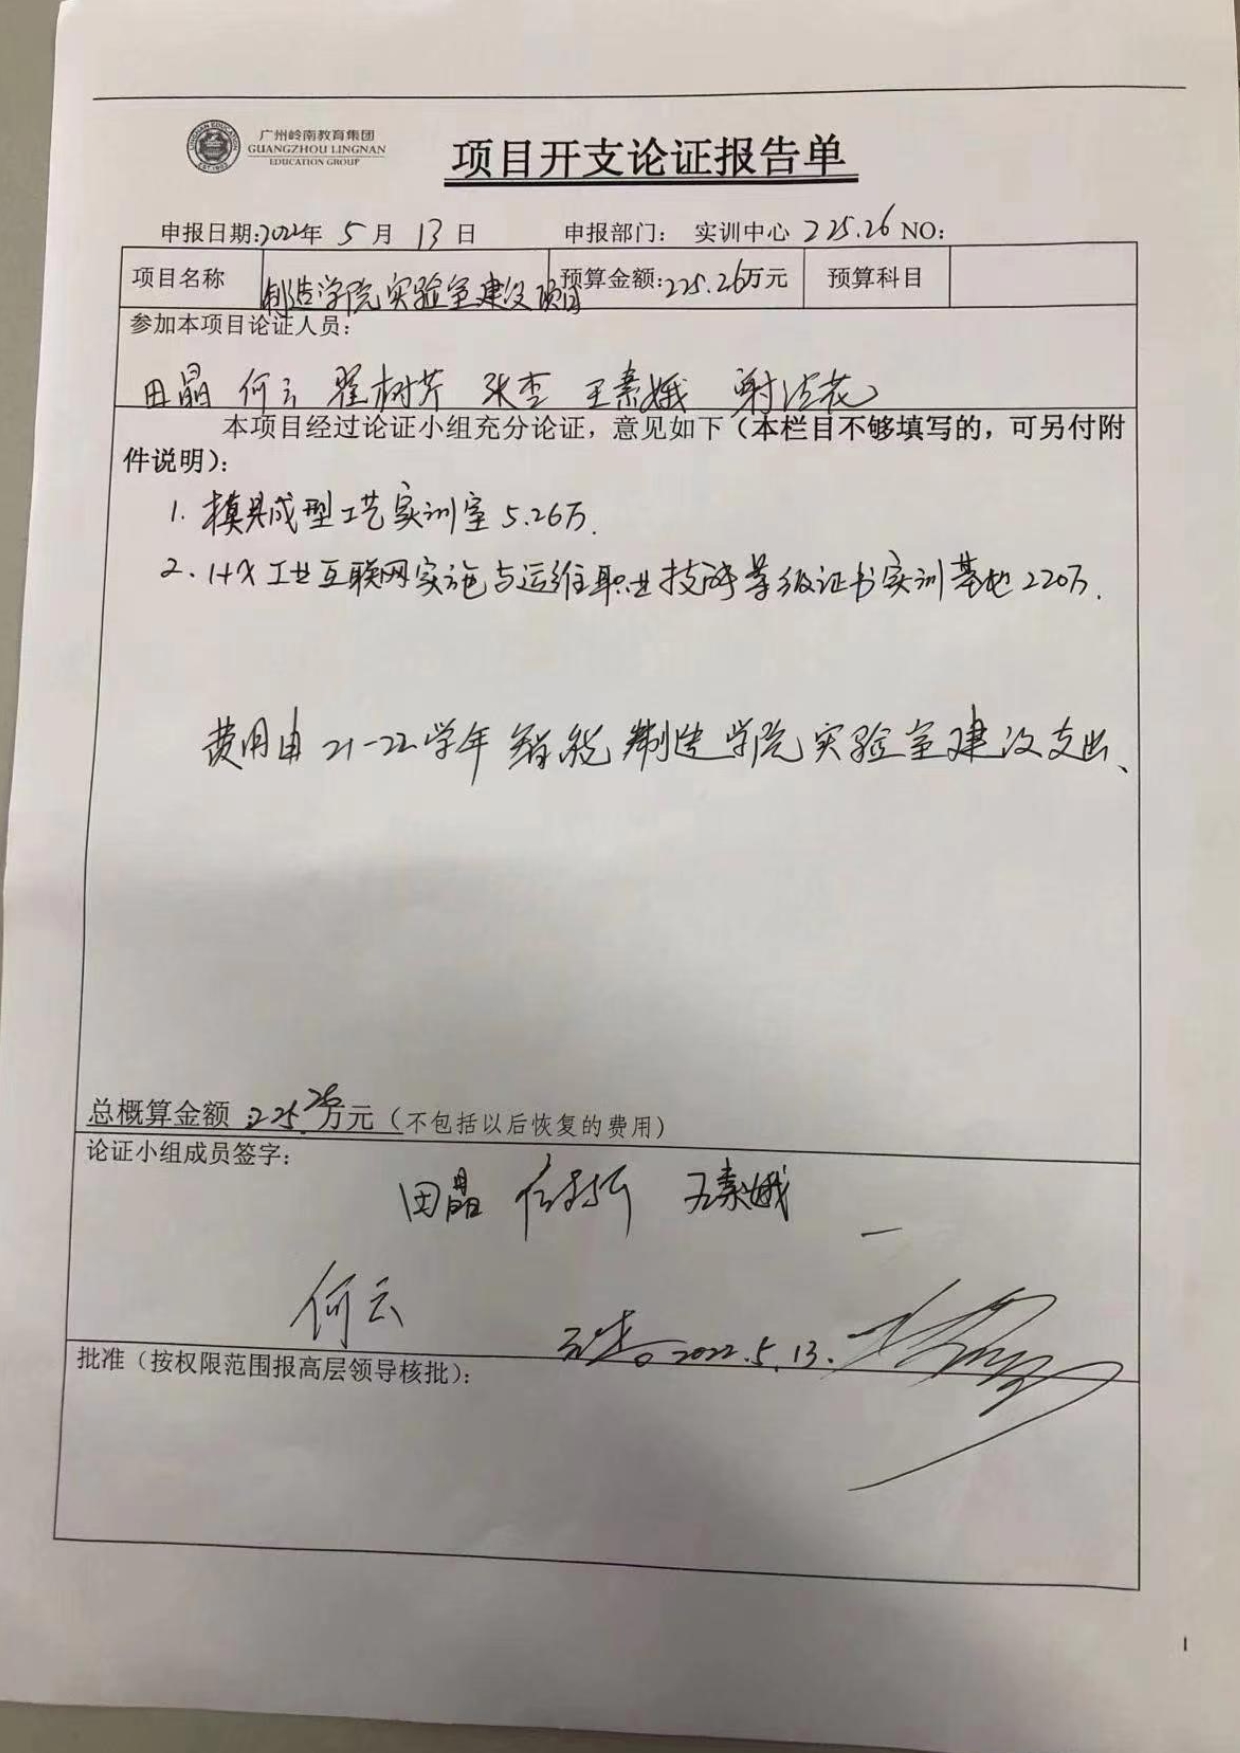 广州岭南教育集团
GUANGZHOU LINGNAN
EDUCATION GROUP
项目开支论证报告单
申报日期:2022年 5 月 13 日 申报部门: 实训中心 225.26 NO:
项目名称 制造学院实验室建设项目 预算金额:225.26万元 预算科目
参加本项目论证人员:
田晶 何云 翟树芹 张杰 王素娥 谢
本项目经过论证小组充分论证，意见如下（本栏目不够填写的，可另付附
件说明）:
1. 模具成型工艺实训室 5.26万.
2. 1+X 工业互联网实施与运维职业技能等级证书实训基地 220万.
费用由 21-22学年 智能 制造学院实验室建设支出、
总概算金额：225.26万元（不包括以后恢复的费用）
论证小组成员签字:
田晶 王素娥
何云
2022.5.13.
批准（按权限范围报高层领导核批）:
1